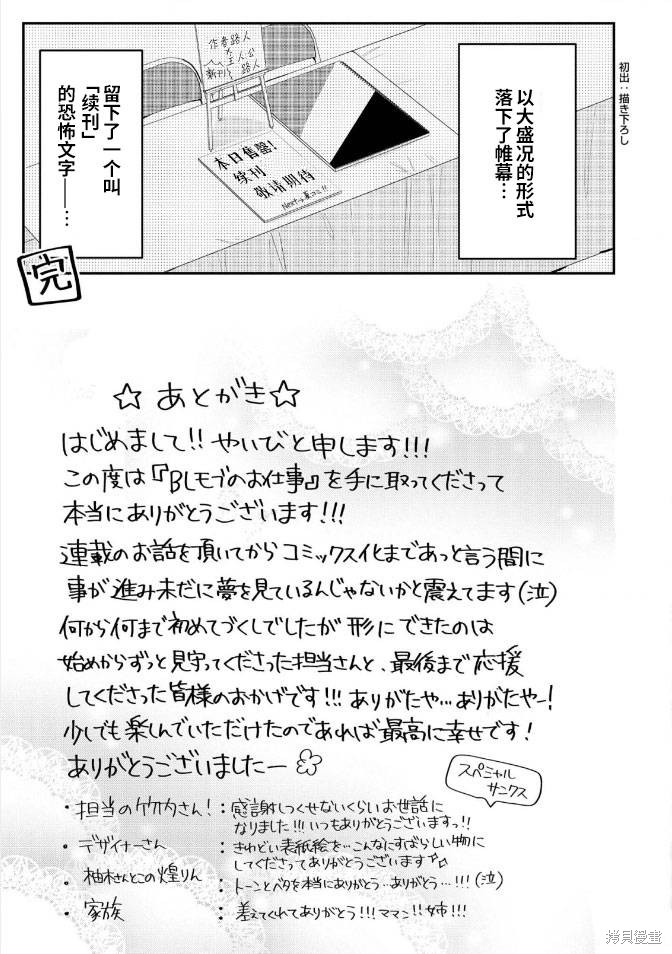 初出：描き下ろし
以大盛况的形式
落下了帷幕…
作者路人
×
主人公
新刊 路人
本日售罄！
续刊
敬请期待
Nextは夏コミ!!
留下了一个叫
「续刊」
的恐怖文字——…
完
☆あとがき☆
はじめまして!!やいびと申します!!!
この度は『BLモブのお仕事』を手に取ってくださって
本当にありがとうございます!!!
連載のお話を頂いてからコミックス化まであっと言う間に
事が進み未だに夢を見ているんじゃないかと震えてます(泣)
何から何まで初めてづくしでしたが形にできたのは
始めからずっと見守ってくださった担当さんと、最後まで応援
してくださった皆様のおかげです!!!ありがたや…ありがたやー!
少しでも楽しんでいただけたのであれば最高に幸せです!
ありがとうございましたー
スペシャル
サンクス
・担当のケケタさん!：感謝しつくせないくらいお世話に
なりました!!!いつもありがとうございますっ!!
・デザイナーさん：きわどい表紙絵を…こんなにすばらしい物に
してくださってありがとうございます
・柚木さんとこの煌りん：トーンとベタを本当にありがとう…ありがとう…!!!(泣)
・家族：差えてくれてありがとう!!!ママン!!姉!!!
拷貝漫畫